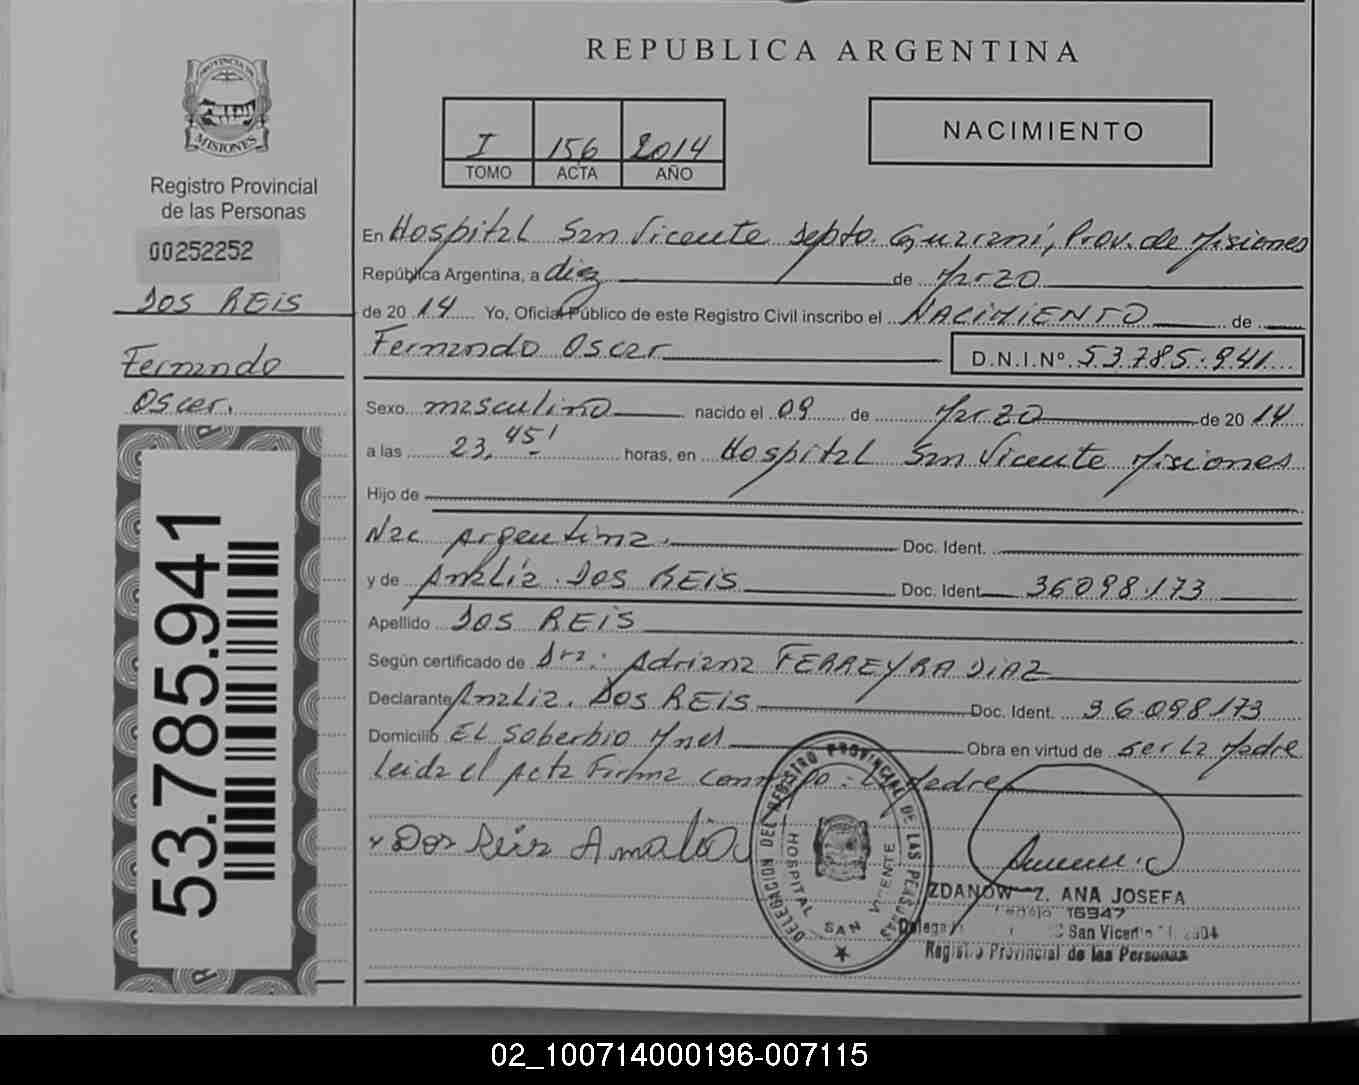 REPUBLICA ARGENTINA
PROVINCIA DE
MISIONES
Registro Provincial
de las Personas
00252252
DOS REIS
Fernando
Oscar.
53.785.941
I 156 2014
TOMO ACTA AÑO
NACIMIENTO
En Hospital San Vicente Depto. Guarani, Prov. de Misiones
República Argentina, a diez de Marzo
de 2014 Yo, Oficial Público de este Registro Civil inscribo el NACIMIENTO de
Fernando Oscar D.N.I.Nº 53.785.941
Sexo masculino nacido el 09 de Marzo de 2014
a las 23,45' horas, en Hospital San Vicente Misiones
Hijo de
Nac Argentina. Doc. Ident.
y de Amalia. DOS REIS Doc. Ident. 36098.173
Apellido DOS REIS
Según certificado de Dra: Adriana FERREYRA DIAZ
Declarante Amalia. DOS REIS Doc. Ident. 36.098.173
Domicilio EL Soberbio Mnes Obra en virtud de ser La Madre
Leida el Acta Firma Conmigo: La Madre
x Dos Reis Amalia
DELEGACION DEL REGISTRO PROVINCIAL DE LAS PERSONAS
HOSPITAL SAN VICENTE
ANA JOSEFA
Legajo 16947
San Vicente
Registro Provincial de las Personas
02_100714000196-007115